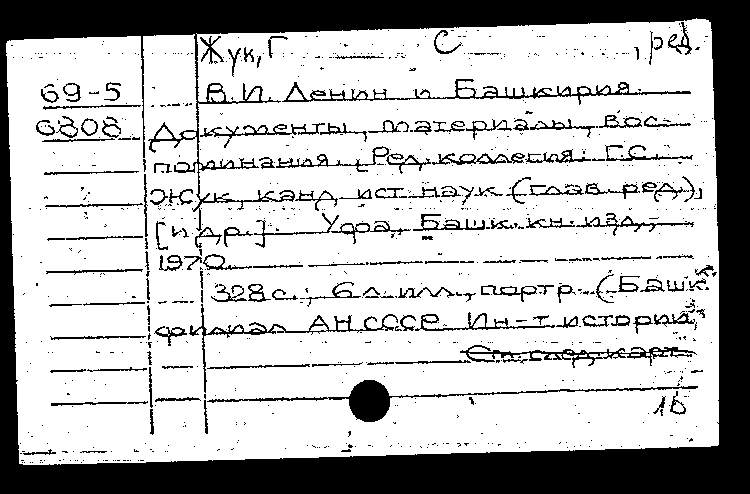 Жук, Г С , ред.
69-5 В.И. Ленин и Башкирия.
6808 Документы, материалы, вос-
поминания. [Ред. коллегия: Г.С.
Жук, канд. ист. наук (глав. ред.),
[и др.]. Уфа, Башк. кн. изд.,
1970.
328 с.; 6 л. илл., портр. (Башк.
филиал АН СССР. Ин-т истории,
См. след. карт.
1б